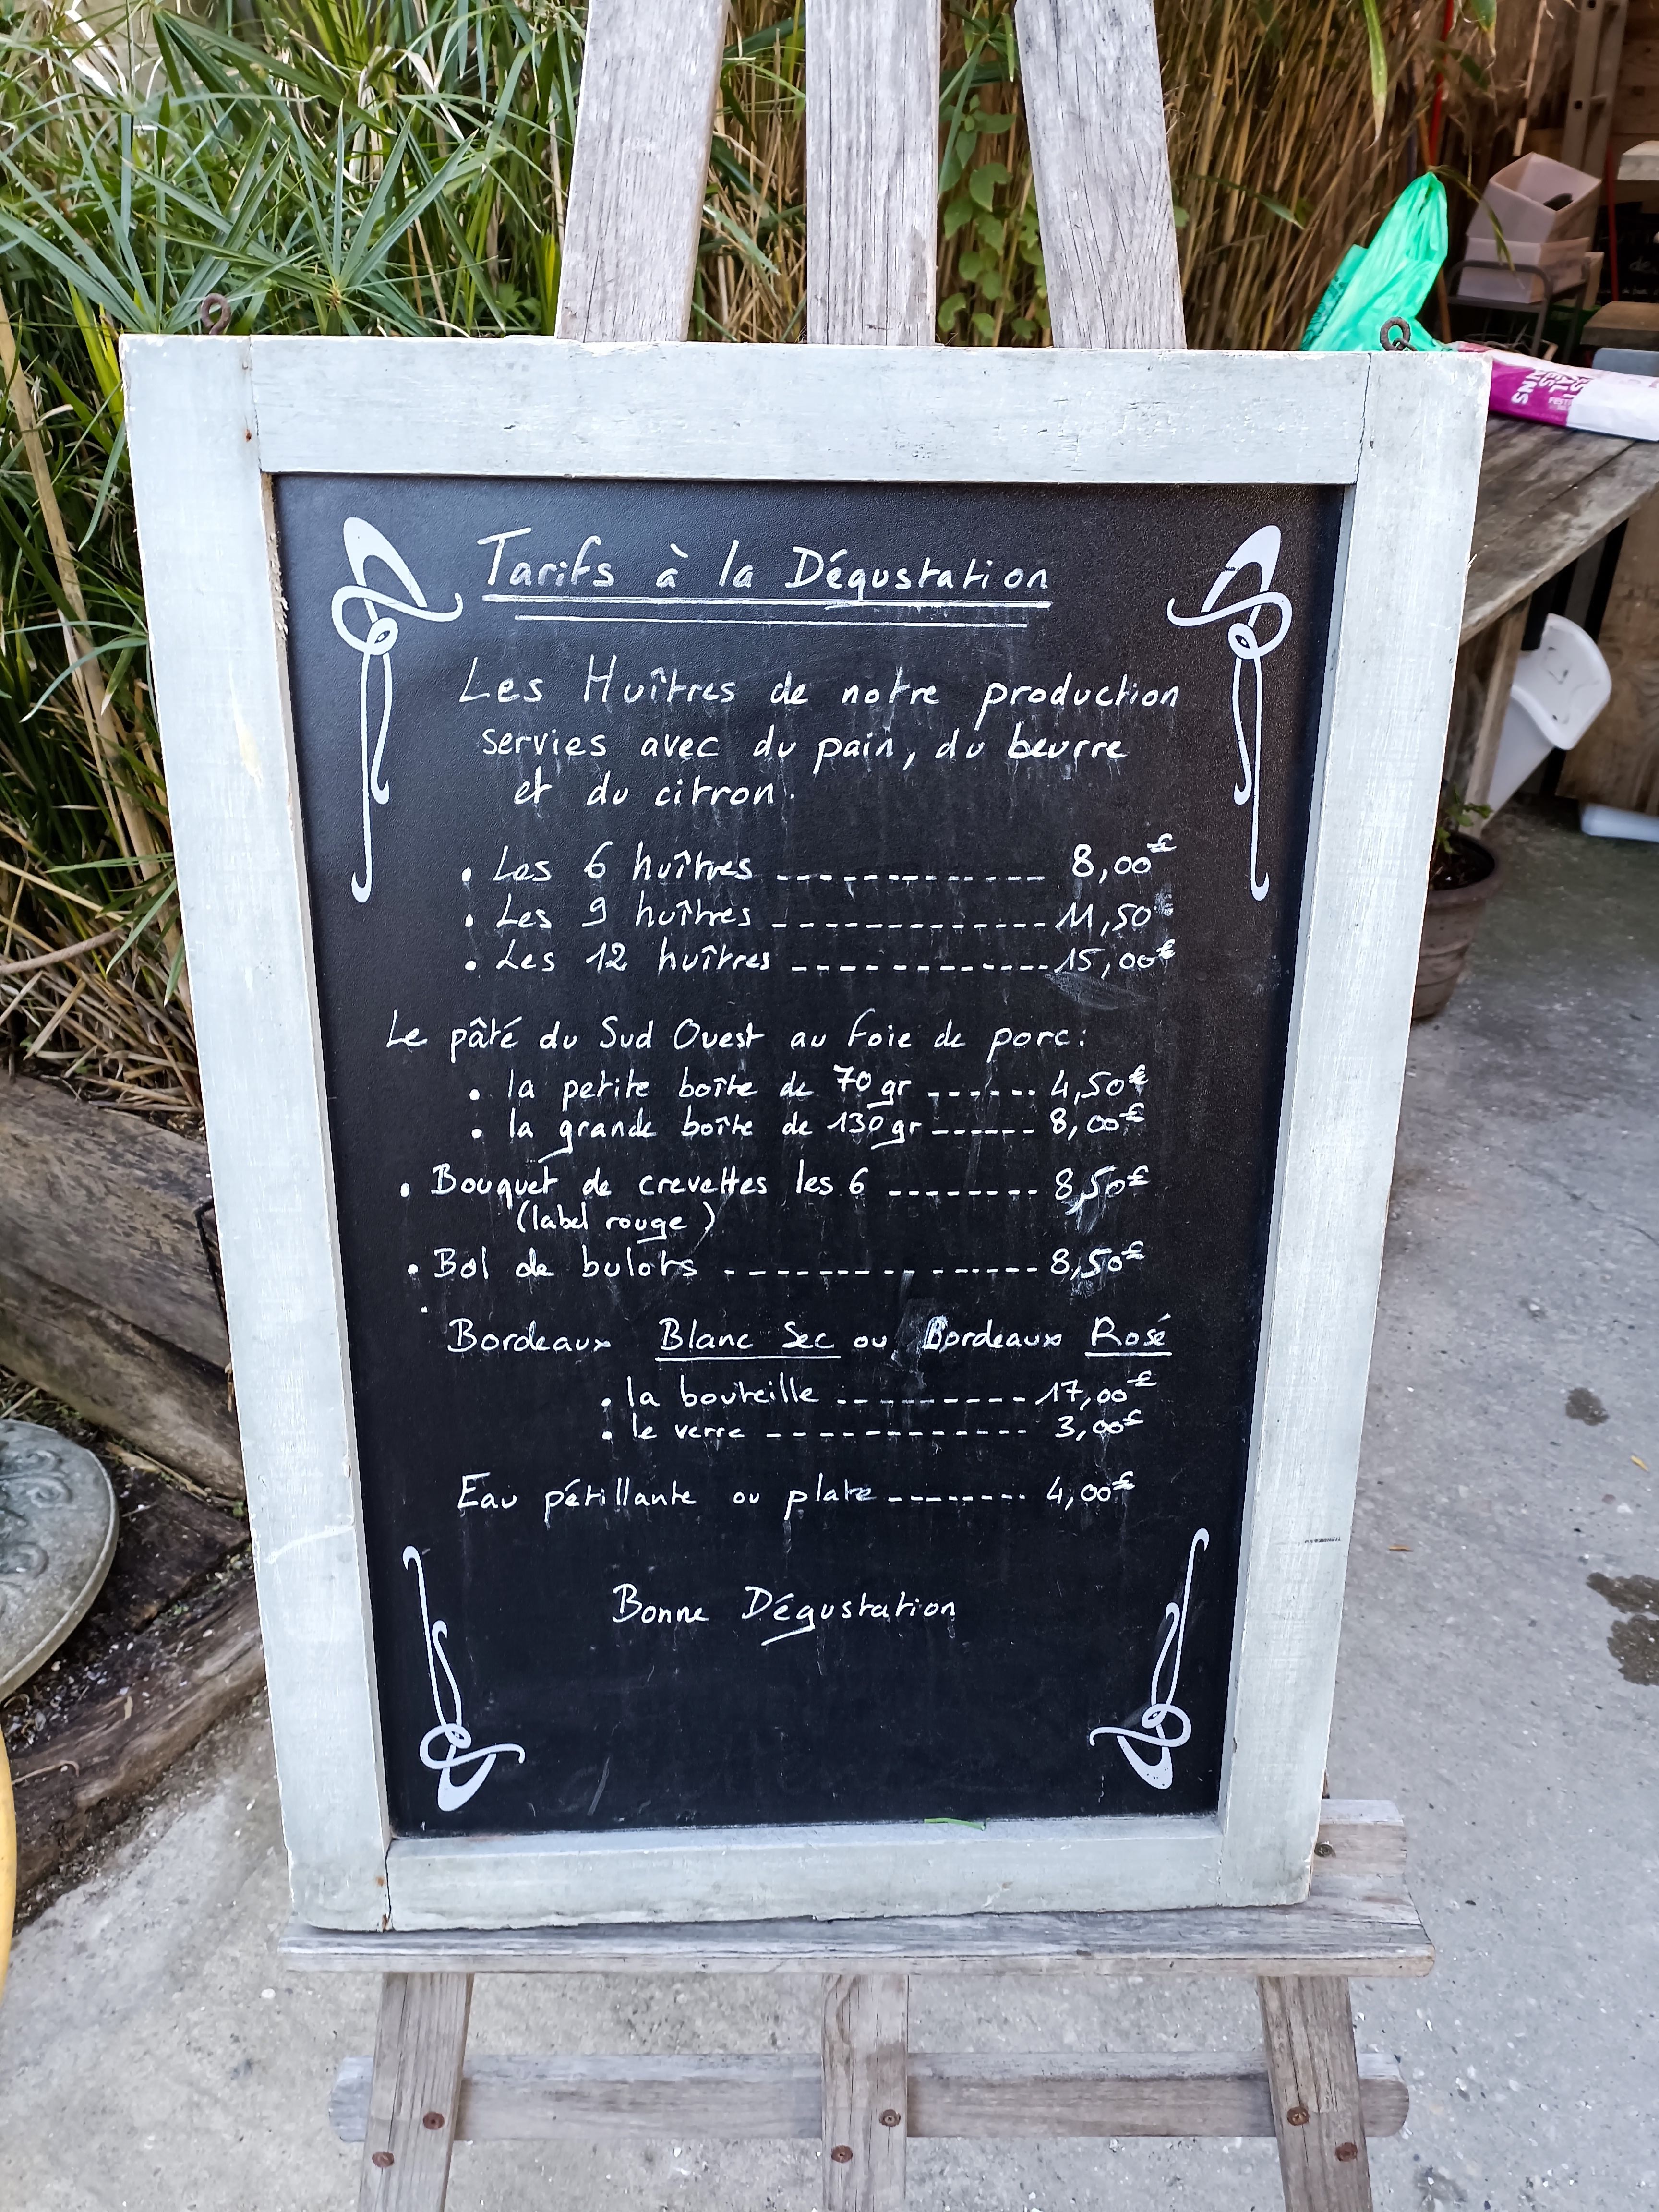 Tarifs à la Dégustation
Les Huîtres de notre production
servies avec du pain, du beurre
et du citron.
. Les 6 huîtres ------------- 8,00€
. Les 9 huîtres ------------- 11,50€
. Les 12 huîtres ------------ 15,00€
Le pâté du Sud Ouest au foie de porc:
. la petite boîte de 70gr ------ 4,50€
. la grande boîte de 130gr ------ 8,00€
. Bouquet de crevettes les 6 -------- 8,50€
(label rouge)
. Bol de bulots --------------- 8,50€
Bordeaux Blanc Sec ou Bordeaux Rosé
. la bouteille ---------- 17,00€
. le verre ------------ 3,00€
Eau pétillante ou plate -------- 4,00€
Bonne Dégustation